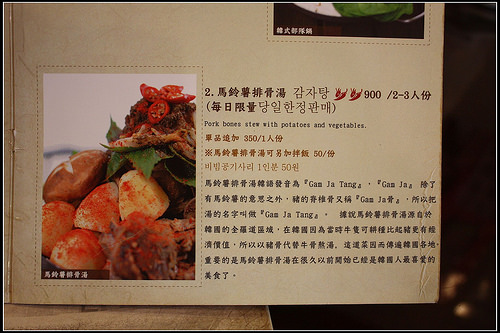 韓式部隊鍋
2.馬鈴薯排骨湯 감자탕 900 /2-3人份
(每日限量당일한정판매)
Pork bones stew with potatoes and vegetables.
單品追加 350/1人份
※馬鈴薯排骨湯可另加拌飯 50/份
비빔공기사리 1인분 50원
馬鈴薯排骨湯韓語發音為『Gam Ja Tang』，『Gam Ja』 除了
有馬鈴薯的意思之外，豬的脊椎骨又稱『Gam Ja骨』，所以把
湯的名字叫做『Gam Ja Tang』。 據說馬鈴薯排骨湯源自於
韓國的全羅道區域，在韓國因為當時牛隻可耕種比起豬更有經
濟價值，所以以豬骨代替牛骨熬湯，這道菜因而傳遍韓國各地，
重要的是馬鈴薯排骨湯在很久以前開始已經是韓國人最喜愛的
美食了。
馬鈴薯排骨湯